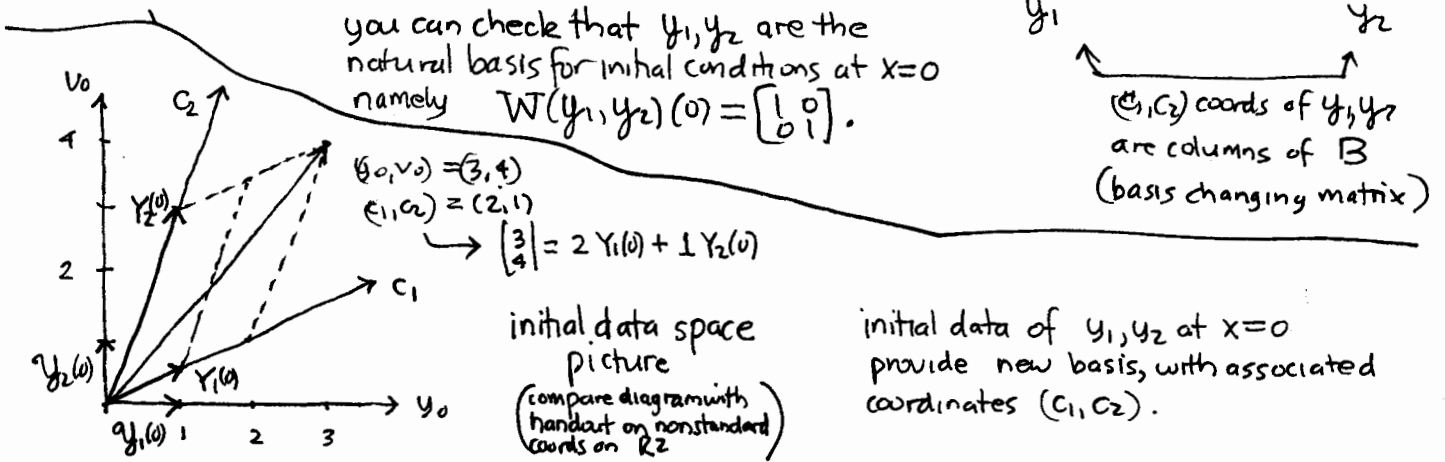 you can check that y₁,y₂ are the
natural basis for initial conditions at x=0
namely W(y₁,y₂)(0)=[1 0
0 1].
y₁ y₂
(c₁,c₂) coords of y₁,y₂
are columns of B
(basis changing matrix)
v₀
c₂
4
(y₀,v₀)=(3,4)
(c₁,c₂)=(2,1)
→ [3
4] = 2 Y₁(0) + 1 Y₂(0)
Y₂(0)
2
c₁
y₂(0)
Y₁(0)
y₀
y₁(0) 1 2 3
initial data space
picture
(compare diagram with
handout on nonstandard
coords on R2)
initial data of y₁,y₂ at x=0
provide new basis, with associated
coordinates (c₁,c₂).